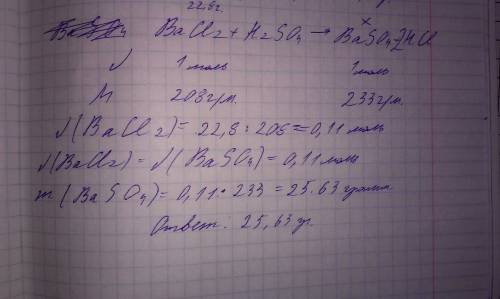 22.8г. x
BaCl2 + H2SO4 → BaSO4 + 2HCl
√ 1 моль 1 моль
M 208 гм. 233 гм.
√(BaCl2) = 22,8 : 208 = 0,11 моль
√(BaCl2) = √(BaSO4) = 0,11 моль
m(BaSO4) = 0,11 · 233 = 25.63 грамм
Ответ: 25,63 гр.